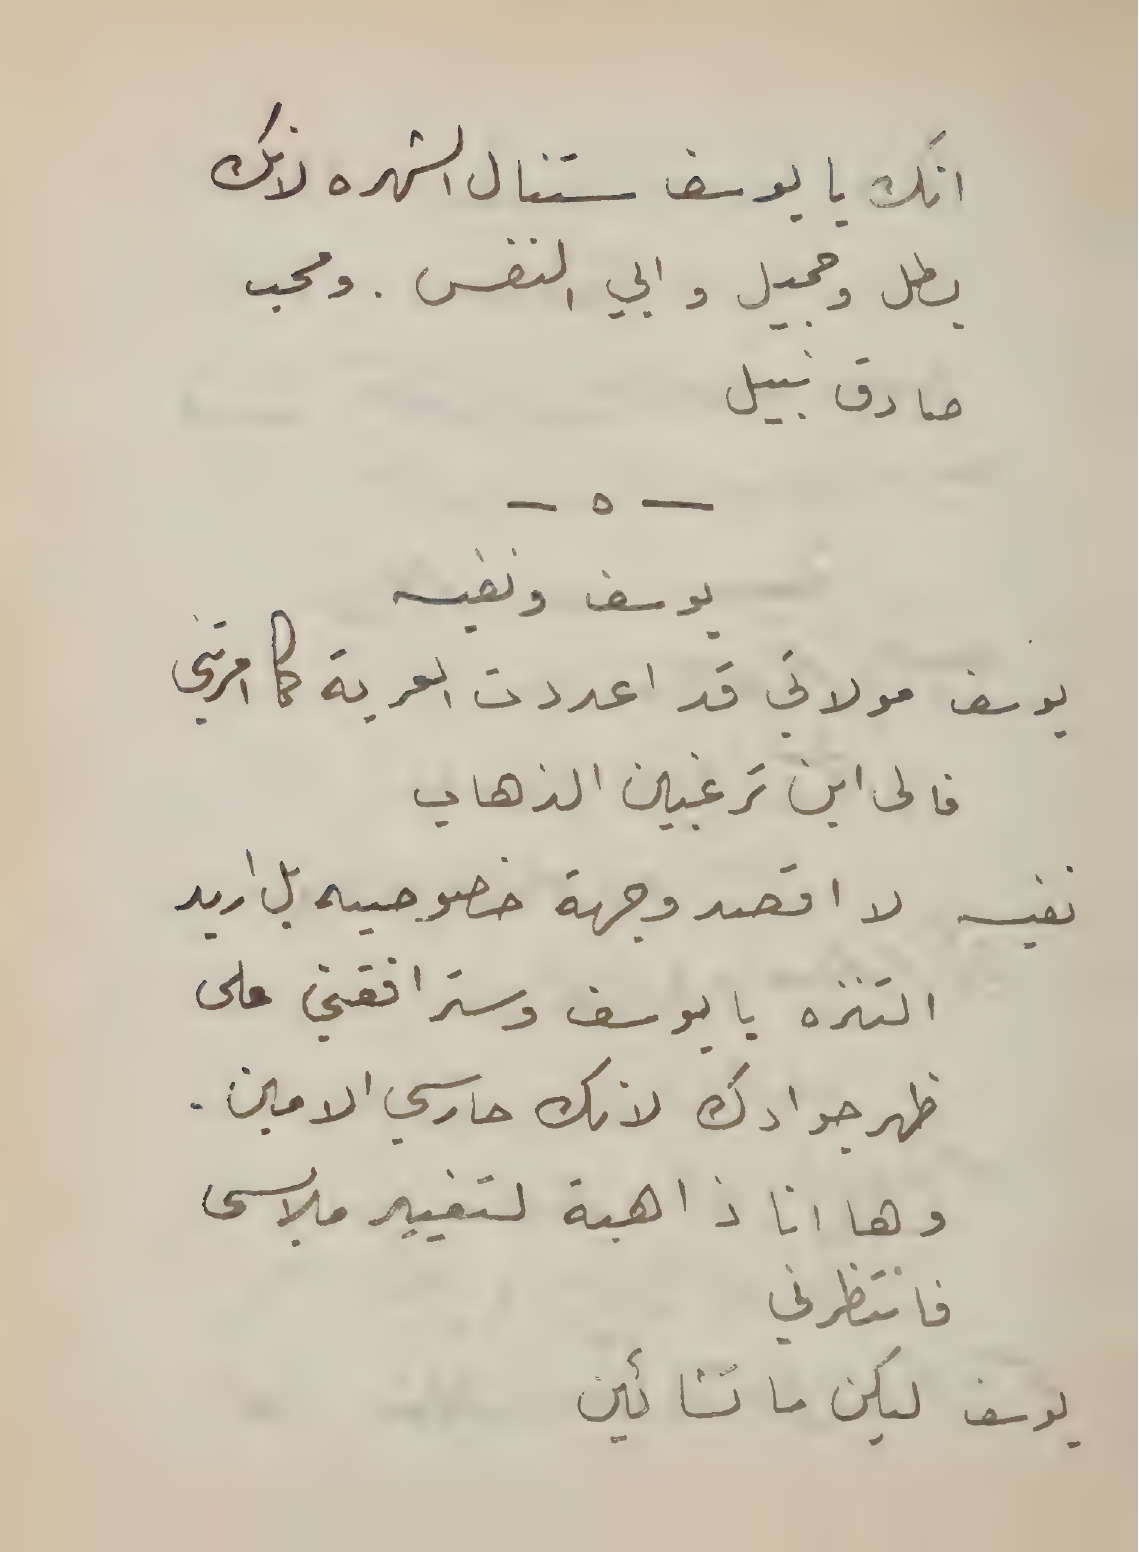 انك يا يوسف ستنال الشهره لانك
بطل وجميل وابي النفس . ومحب
صادق نبيل
— ٥ —
يوسف ونفيسه
يوسف مولاتي قد اعددت العربة كما امرتني
فالى اين ترغبين الذهاب
نفيسه لا اقصد وجهة خصوصيه بل اريد
التنزه يا يوسف وسترافقني على
ظهر جوادك لانك حارسي الامين .
وها انا ذاهبة لتغيير ملابسى
فانتظرني
يوسف ليكن ما تشائين